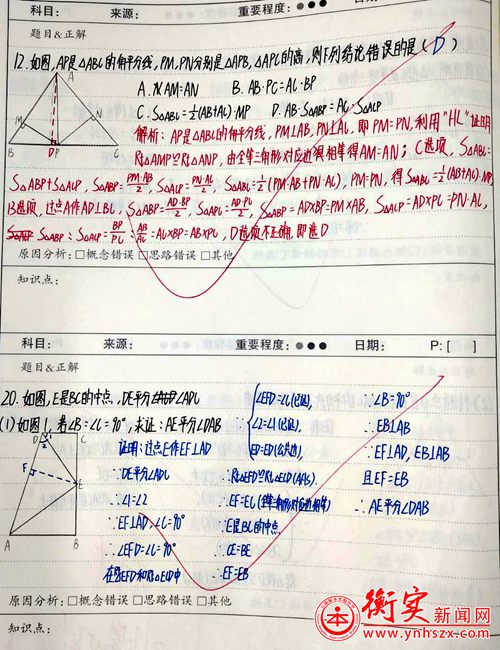 科目: 来源: 重要程度:●●●
题目&正解
12.如图,AP是△ABC的角平分线,PM,PN分别是△APB,△APC的高,则下列结论错误的是(D)
A.AM=AN B.AB·PC=AC·BP
C.S△ABC=½(AB+AC)·MP D.AB·S△ABP=AC·S△ACP
A
M
N
B
D
P
C
解析:AP是△ABC的角平分线,PM⊥AB,PN⊥AC,即PM=PN,利用"HL"证明
Rt△AMP≌Rt△ANP,由全等三角形对应边相等得AM=AN;C选项,S△ABC=
S△ABP+S△ACP,S△ABP=PM·AB/2,S△ACP=PN·AC/2,S△ABC=½(PM·AB+PN·AC),PM=PN,得S△ABC=½(AB+AC)·MP
B选项,过点A作AD⊥BC,S△ABP=AD·BP/2,S△APC=AD·PC/2,S△ABP=AD×BP=PM×AB,S△ACP=AD×PC=PN·AC,
S△ABP:S△ACP=BP/PC=AB/AC=AC×BP=AB×PC,D选项不正确,即选D
原因分析:□概念错误□思路错误□其他
知识点:
科目: 来源: 重要程度:●●● 日期: P:[ ]
题目&正解
20.如图,E是BC的中点,DE平分∠ADC
(1)如图1,若∠B=∠C=90°,求证:AE平分∠DAB
D
C
1
2
F
E
A
B
证明:过点E作EF⊥AD
∵DE平分∠ADC
∴∠1=∠2
∵EF⊥AD,∠C=90°
∴∠EFD=∠C=90°
在Rt△EFD和Rt△ECD中
∠EFD=∠C(已证),
∠2=∠1(已证),
ED=ED(公共边),
∴Rt△EFD≌Rt△ECD(AAS).
∴EF=EC(全等三角形对应边相等)
∵E是BC的中点
∴CE=BE
∴EF=EB
∵∠B=90°
∴EB⊥AB
∵EF⊥AD,EB⊥AB
且EF=EB
∴AE平分∠DAB
原因分析:□概念错误□思路错误□其他
知识点:
衡实新闻网
www.ynhszx.com